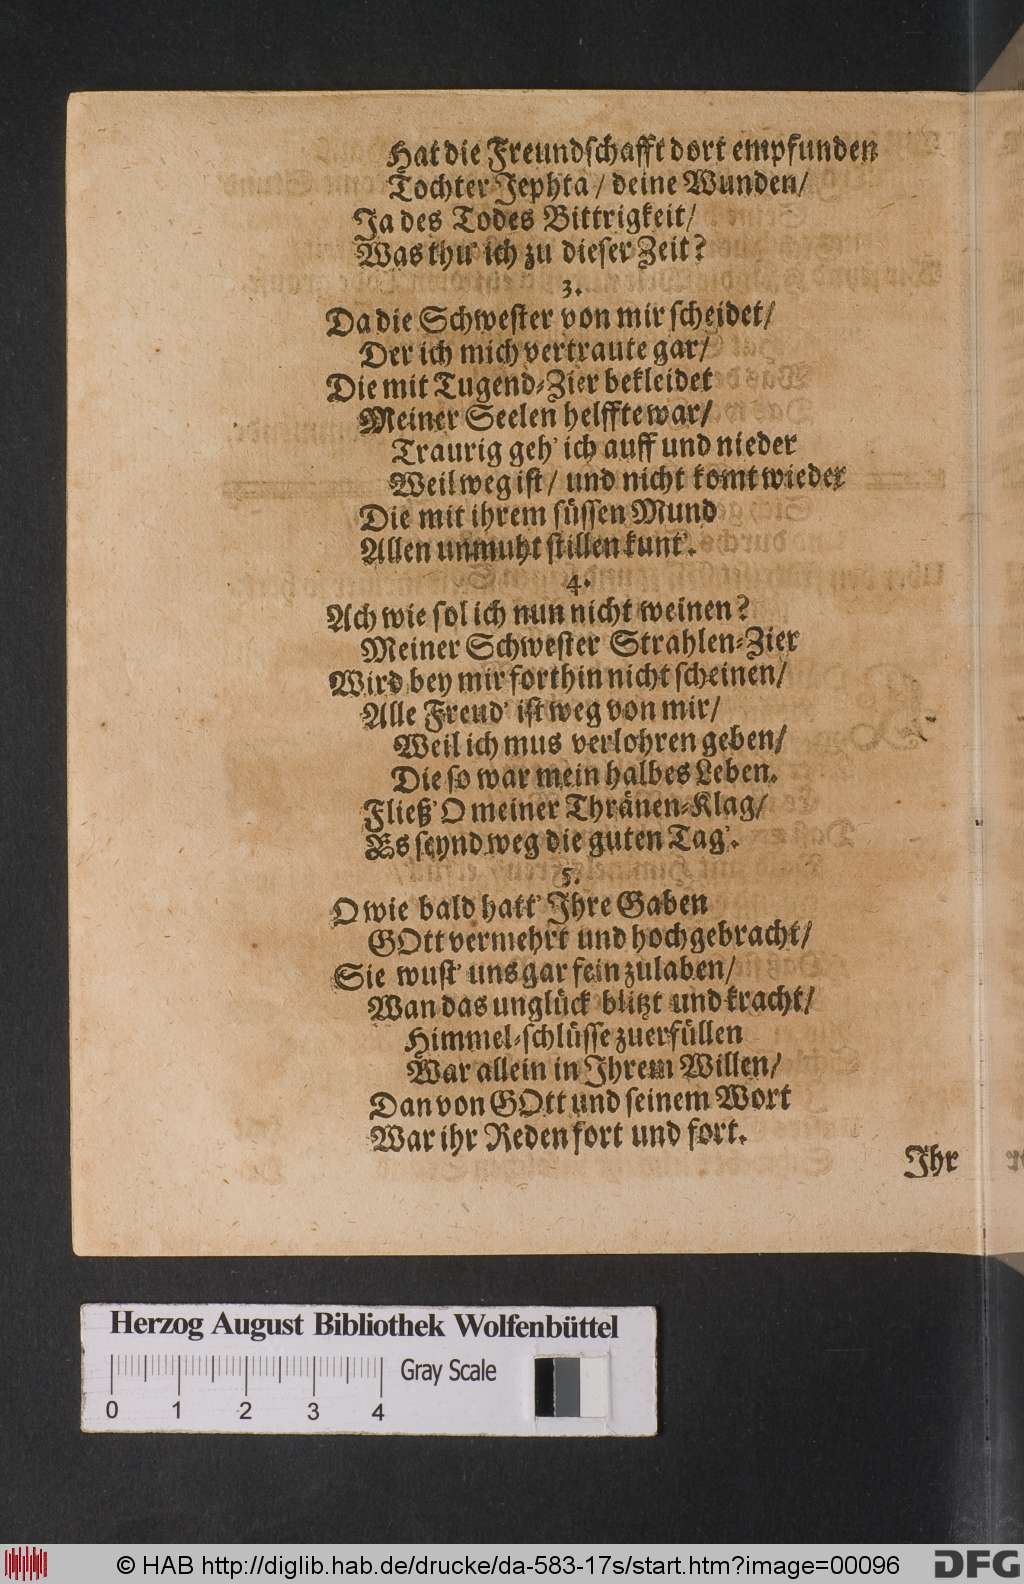 Hat die Freundschafft dort empfunden
Tochter Jephta / deine Wunden /
Ja des Todes Bittrigkeit /
Was thu' ich zu dieser Zeit?
3.
Da die Schwester von mir scheidet /
Der ich mich vertraute gar /
Die mit Tugend-Zier bekleidet
Meiner Seelen helffte war /
Traurig geh' ich auff und nieder
Weil weg ist / und nicht komt wieder
Die mit ihrem süssen Mund
Allen unmuht stillen kunt'.
4.
Ach wie sol ich nun nicht weinen?
Meiner Schwester Strahlen-Zier
Wird bey mir forthin nicht scheinen /
Alle Freud' ist weg von mir /
Weil ich mus verlohren geben /
Die so war mein halbes Leben.
Fließ' O meiner Thränen-Klag /
Es seynd weg die guten Tag'.
5.
O wie bald hatt' Ihre Gaben
GOtt vermehrt und hochgebracht /
Sie wust' uns gar fein zulaben /
Wan das unglück blitzt und kracht /
Himmel-schlüsse zuerfüllen
War allein in Ihrem Willen /
Dan von GOtt und seinem Wort
War ihr Reden fort und fort.
Ihr
Herzog August Bibliothek Wolfenbüttel
Gray Scale
0 1 2 3 4
© HAB http://diglib.hab.de/drucke/da-583-17s/start.htm?image=00096
DFG